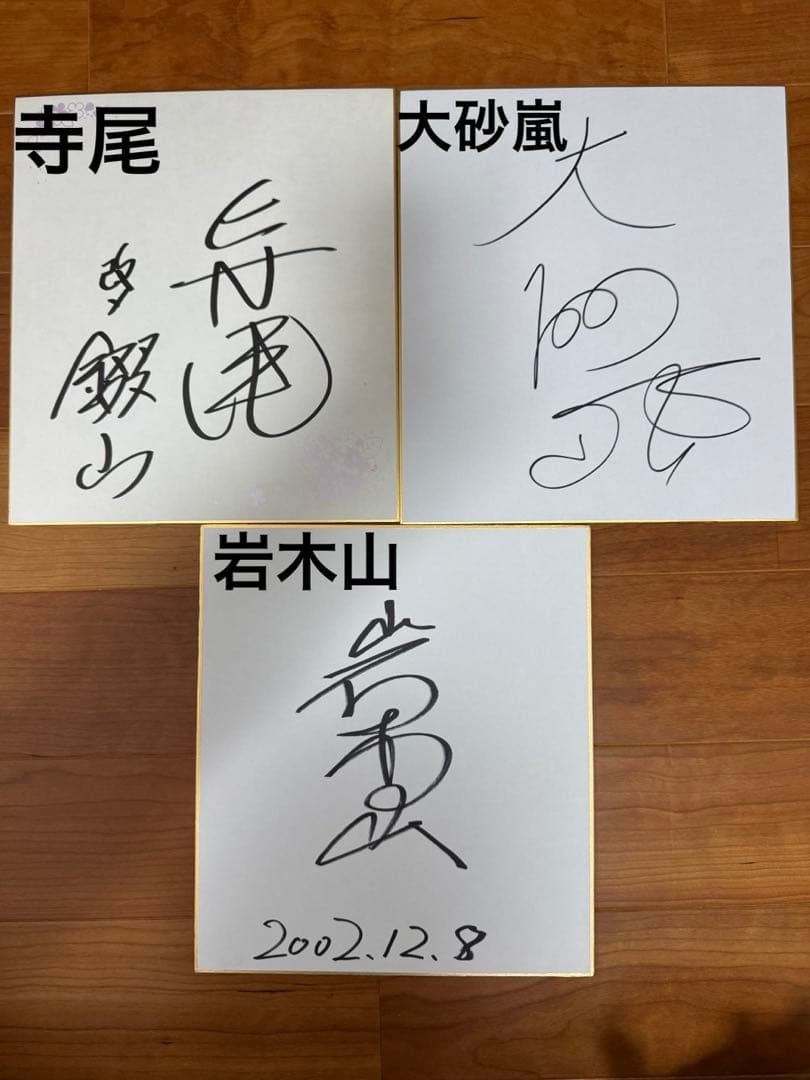 寺尾
寺尾
錣山
大砂嵐
大砂嵐
岩木山
岩木山
2002.12.8